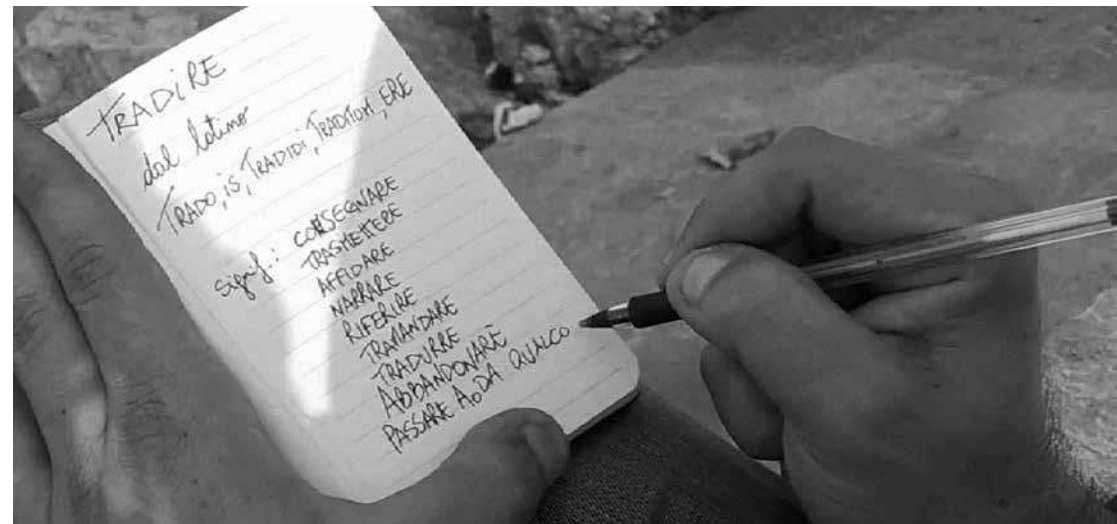 TRADiRE
dal latino
TRADO, iS, TRADIDI, TRADITUM, ERE
signif.: CONSEGNARE
TRASMETTERE
AFFIDARE
NARRARE
RIFERIRE
TRAMANDARE
TRADURRE
ABBANDONARE
PASSARE A O DA QUALCO